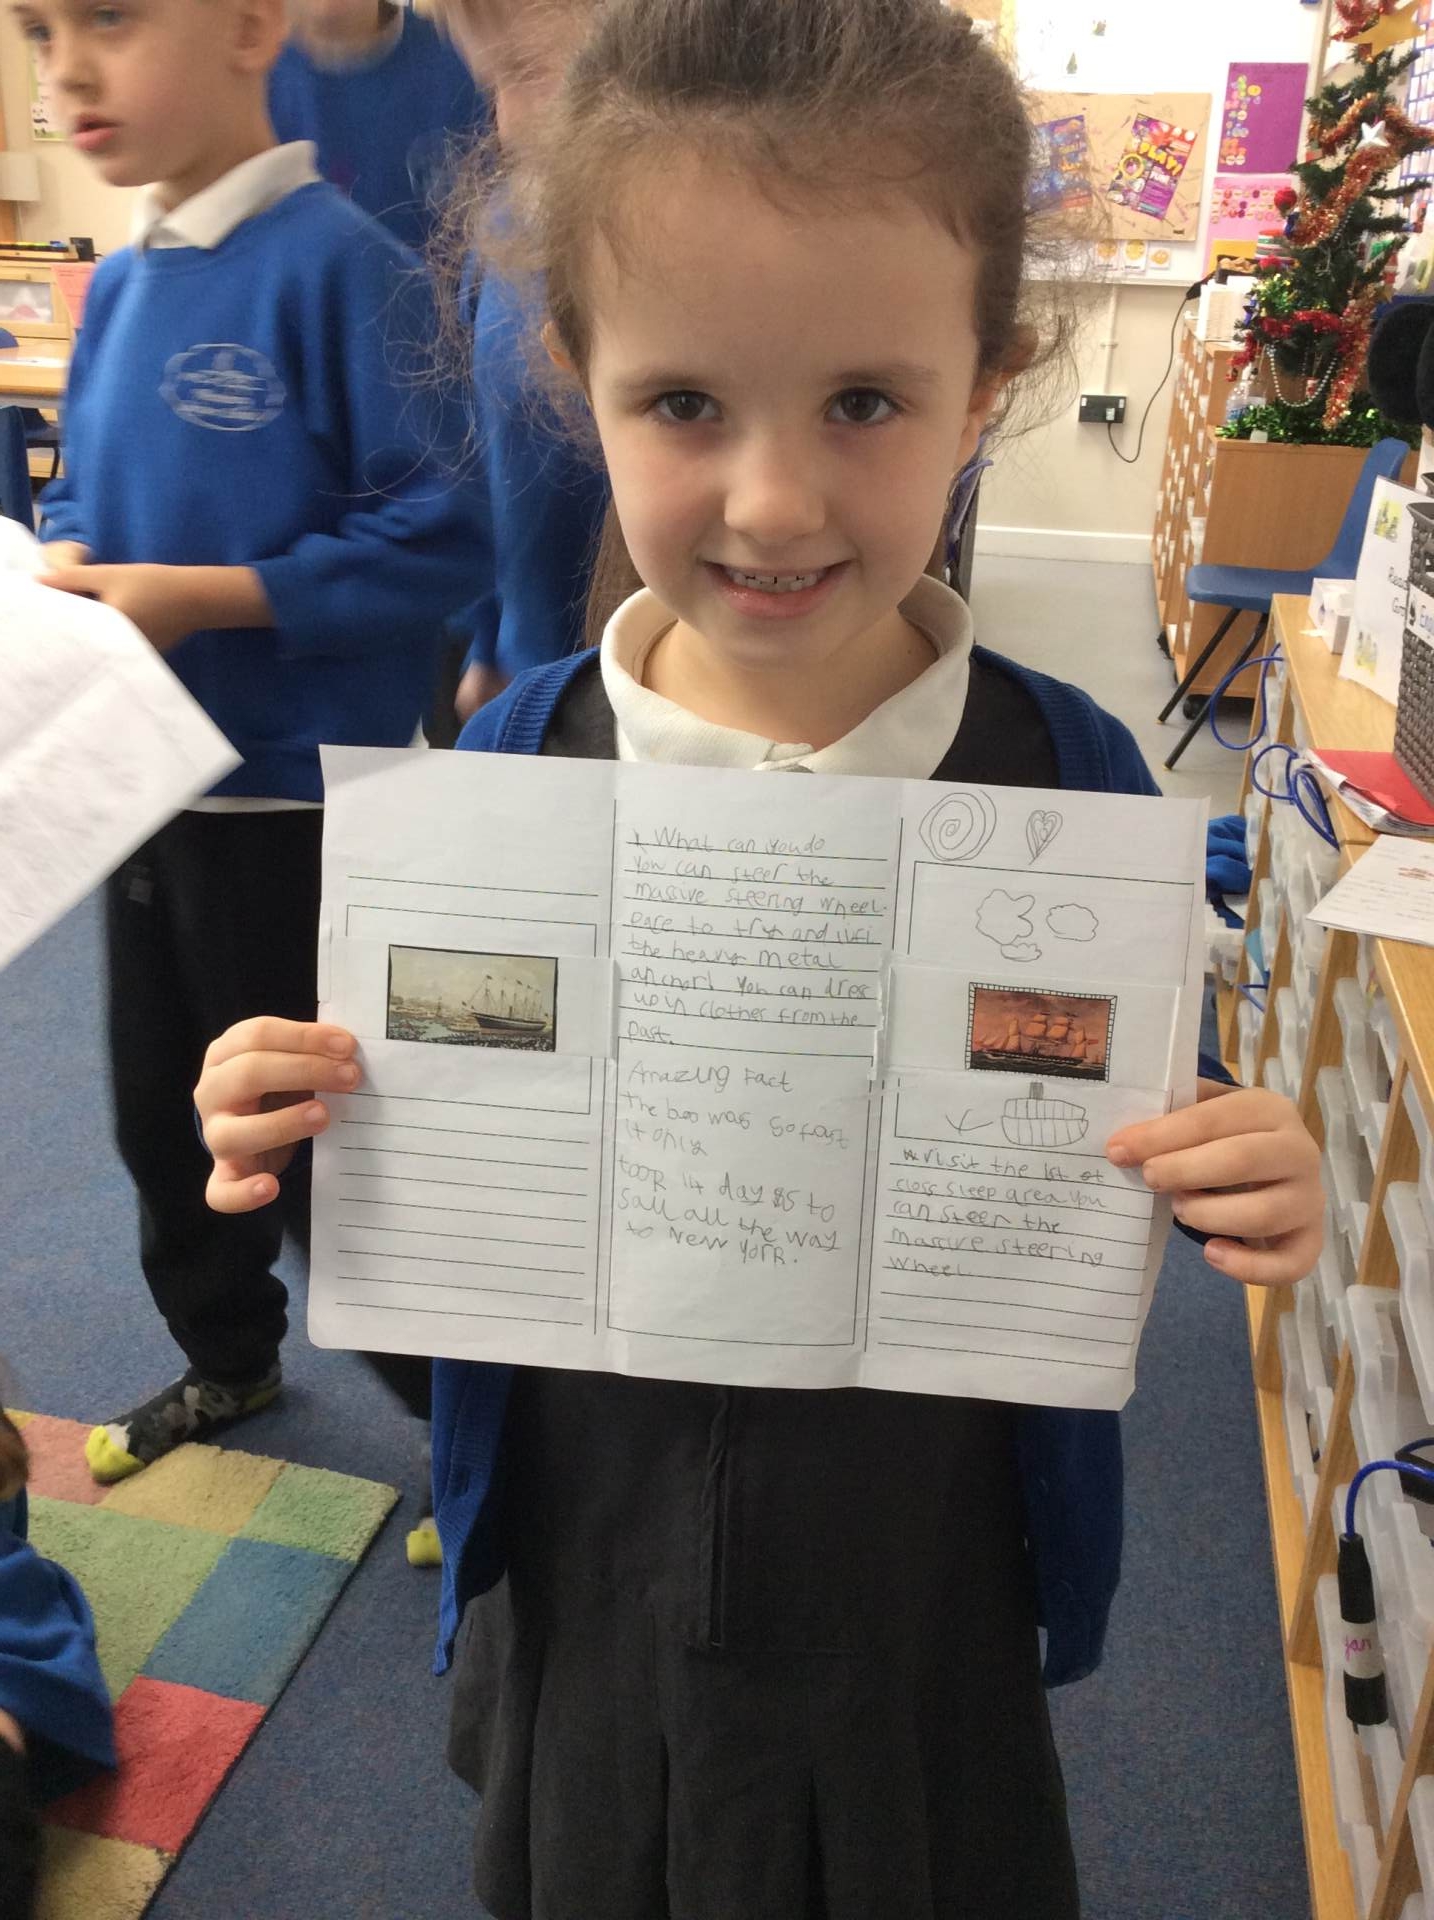 What can you do
You can steer the
massive steering wheel.
Dare to try and lift
the heavy metal
anchor! You can dress
up in clothes from the
past.
Amazing Fact
the boo was so fast
it only
took 14 day to
sail all the way
to New York.
visit the 1st
class sleep area you
can steer the
massive steering
wheel.
PLAY!